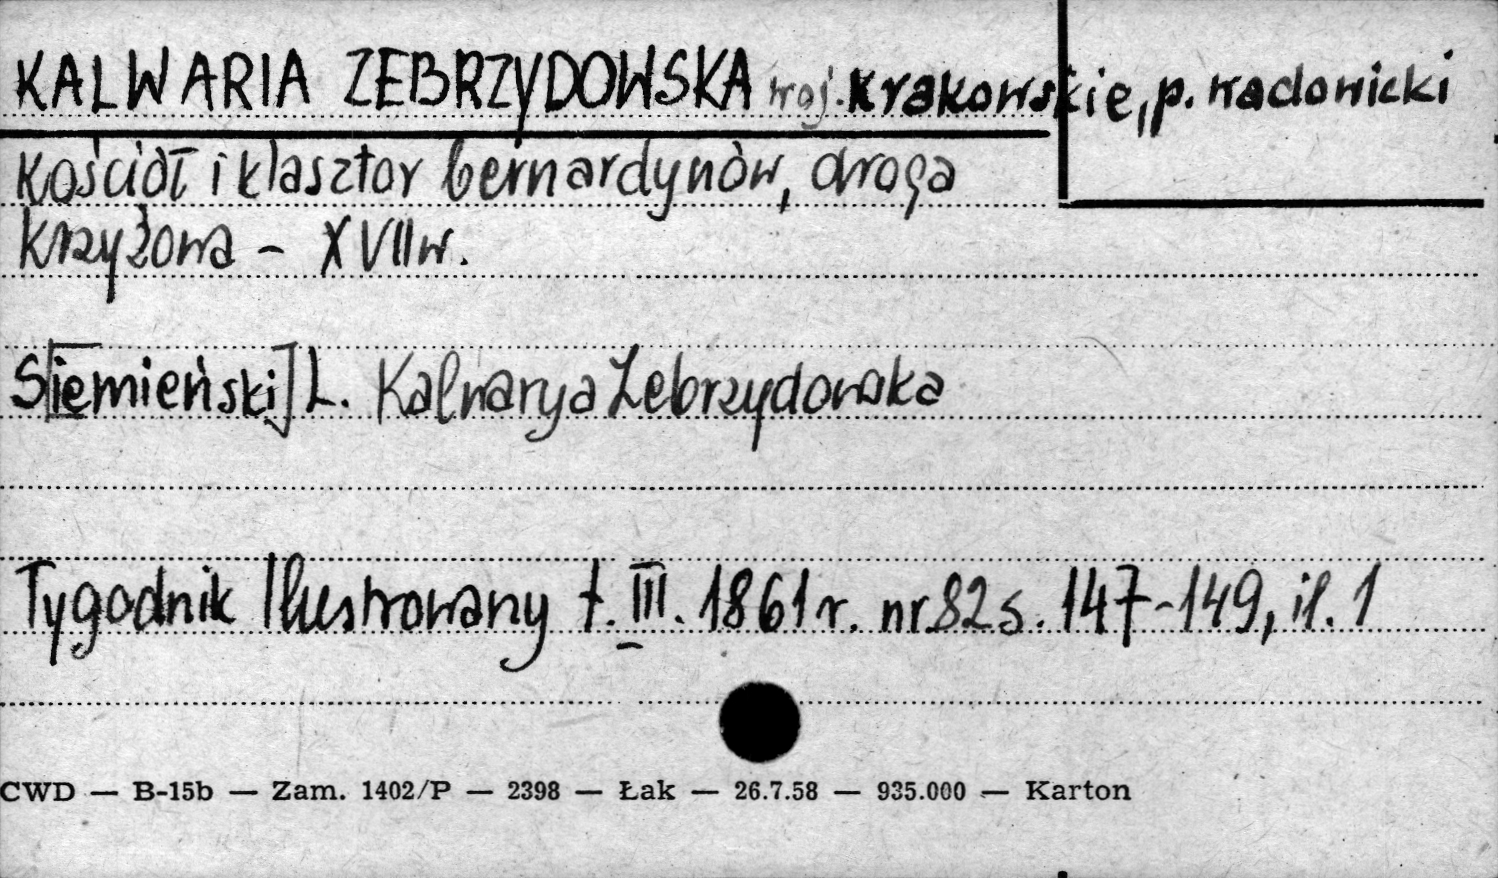 KALWARIA ZEBRZYDOWSKA woj. Krakowskie, p. wadowicki
Kościół i klasztor bernardynów, droga
Krzyżowa – XVII w.
S[iemieński] L. Kalwarya Zebrzydowska
Tygodnik Ilustrowany t. III. 1861 r. nr 82 s. 147-149, il. 1
CWD — B-15b — Zam. 1402/P — 2398 — Łak — 26.7.58 — 935.000 — Karton